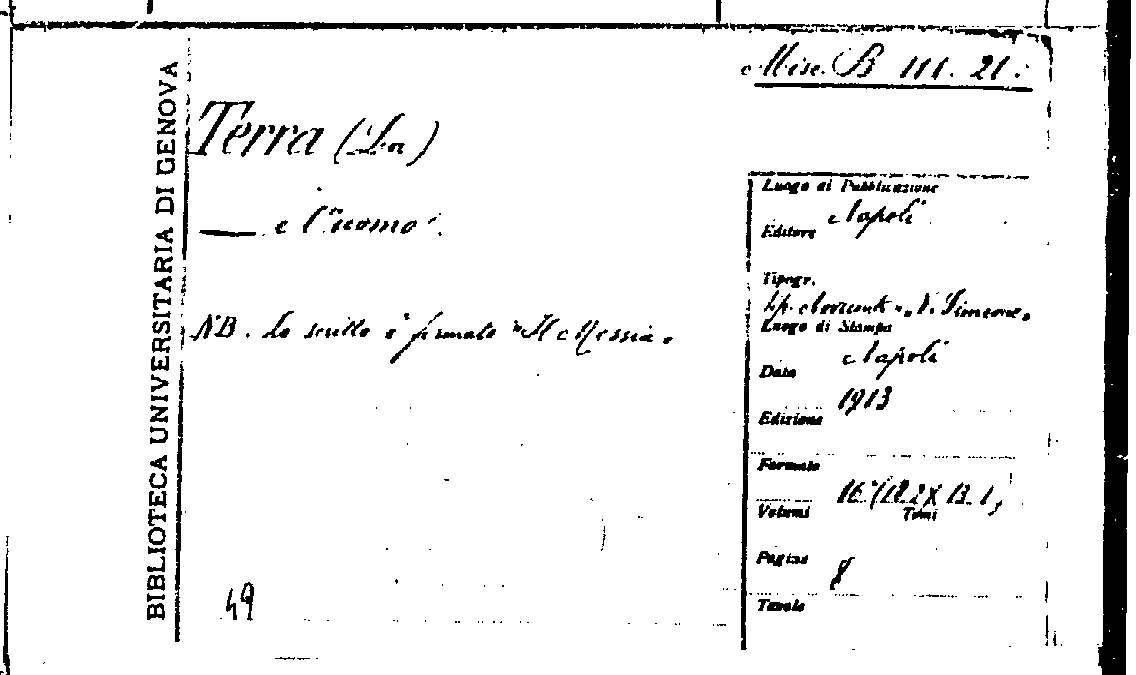 Misc. B 111. 21.
BIBLIOTECA UNIVERSITARIA DI GENOVA
Terra (La)
— e l'uomo.
NB. Lo scritto è firmato "Il Messia"
49
Luogo di Pubblicazione
Napoli
Editore
Tipogr.
Tip. "N. Simeone"
Luogo di Stampa
Napoli
Data
1913
Edizione
Formato
16° (18.2 X 13.1)
Volumi Tomi
Pagine
8
Tavole